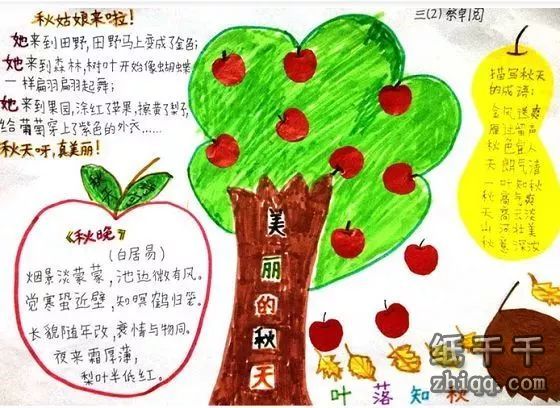 秋姑娘来啦!
她来到田野,田野马上变成了金色;
她来到森林,树叶开始像蝴蝶
一样扁羽扁羽起舞;
她来到果园,涂红了苹果,擦黄了梨子,
给葡萄穿上了紫色的外衣……
秋天呀,真美丽!
三(2)蔡卓园
描写秋天
的成语:
金风送爽
雁过留声
秋色宜人
天朗气清
一叶知秋
秋高气爽
天高云淡
山河壮美
秋意深浓
《秋晚》
(白居易)
烟景淡蒙蒙,池边微有风。
觉寒蛩近壁,知暝鹤归笼。
长貌随年改,衰情与物同。
夜来霜厚薄,
梨叶半低红。
美丽的秋天
叶落知秋
纸千千
zhiqq.com